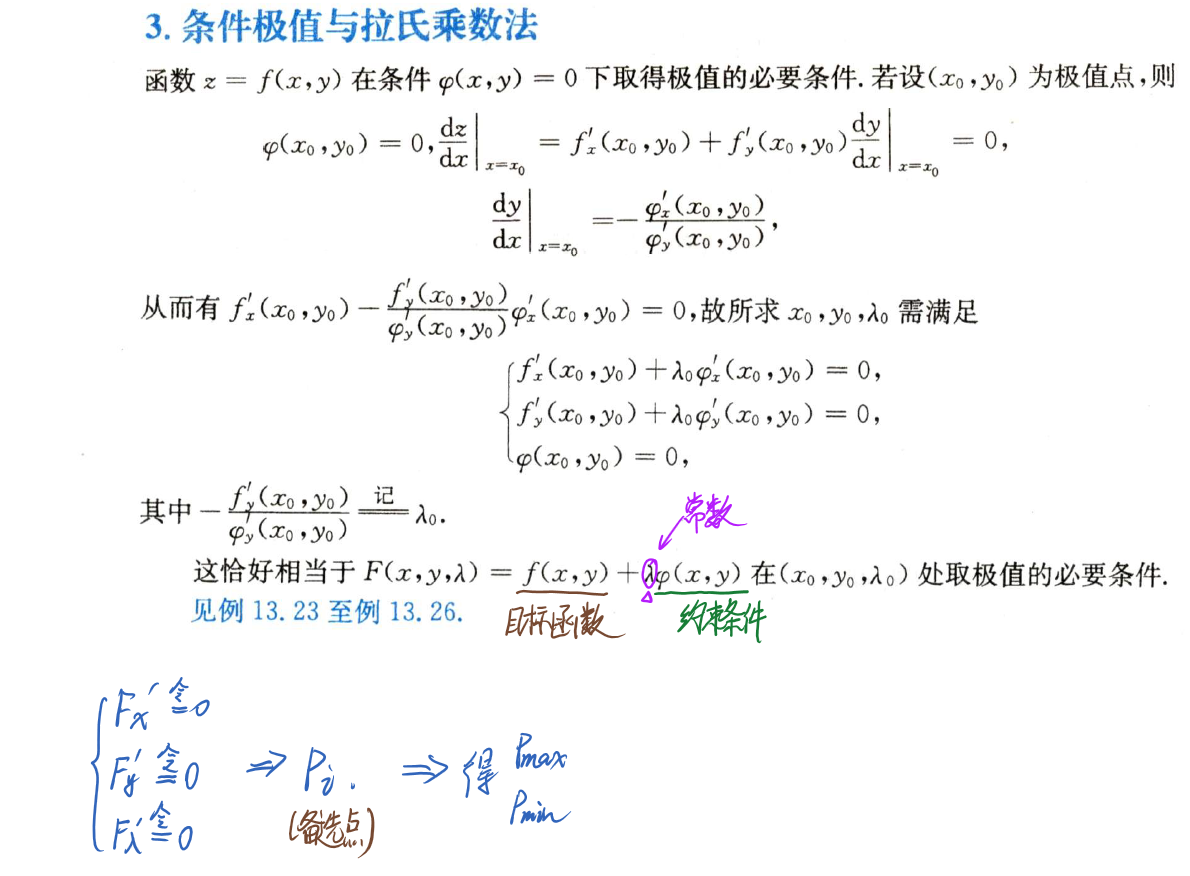 3. 条件极值与拉氏乘数法
函数 z = f(x,y) 在条件 φ(x,y) = 0 下取得极值的必要条件. 若设(x₀,y₀) 为极值点,则
φ(x₀,y₀) = 0, dz/dx|ₓ₌ₓ₀ = f′ₓ(x₀,y₀) + f′ᵧ(x₀,y₀) dy/dx|ₓ₌ₓ₀ = 0,
dy/dx|ₓ₌ₓ₀ = − φ′ₓ(x₀,y₀)/φ′ᵧ(x₀,y₀),
从而有 f′ₓ(x₀,y₀) − f′ᵧ(x₀,y₀)/φ′ᵧ(x₀,y₀) φ′ₓ(x₀,y₀) = 0,故所求 x₀,y₀,λ₀ 需满足
{ f′ₓ(x₀,y₀) + λ₀φ′ₓ(x₀,y₀) = 0,
f′ᵧ(x₀,y₀) + λ₀φ′ᵧ(x₀,y₀) = 0,
φ(x₀,y₀) = 0,
其中 − f′ᵧ(x₀,y₀)/φ′ᵧ(x₀,y₀) 记== λ₀.
常数
这恰好相当于 F(x,y,λ) = f(x,y) + λφ(x,y) 在(x₀,y₀,λ₀) 处取极值的必要条件.
见例 13.23 至例 13.26.
目标函数 约束条件
{ Fₓ′ 令= 0
Fᵧ′ 令= 0 ⇒ Pᵢ. ⇒ 得 Pmax
Pmin
Fλ′ 令= 0 (备选点)